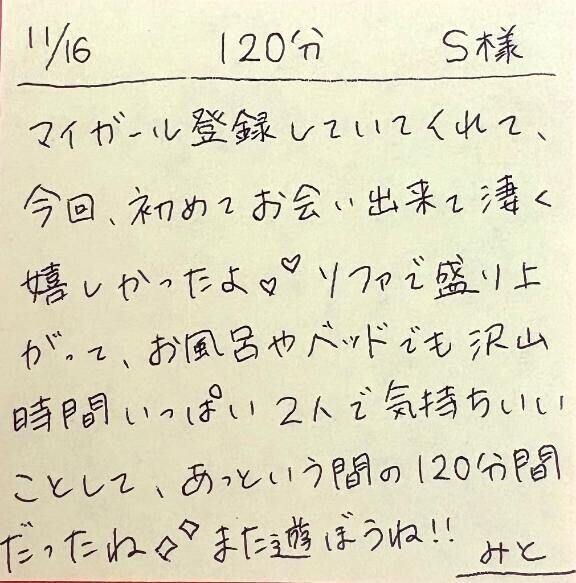 11/16 120分 S様
マイガール登録していてくれて、
今回、初めてお会い出来て凄く
嬉しかったよ♡♡ ソファで盛り上
がって、お風呂やベッドでも沢山
時間いっぱい2人で気持ちいい
ことして、あっという間の120分間
だったね◇◇また遊ぼうね!! みと